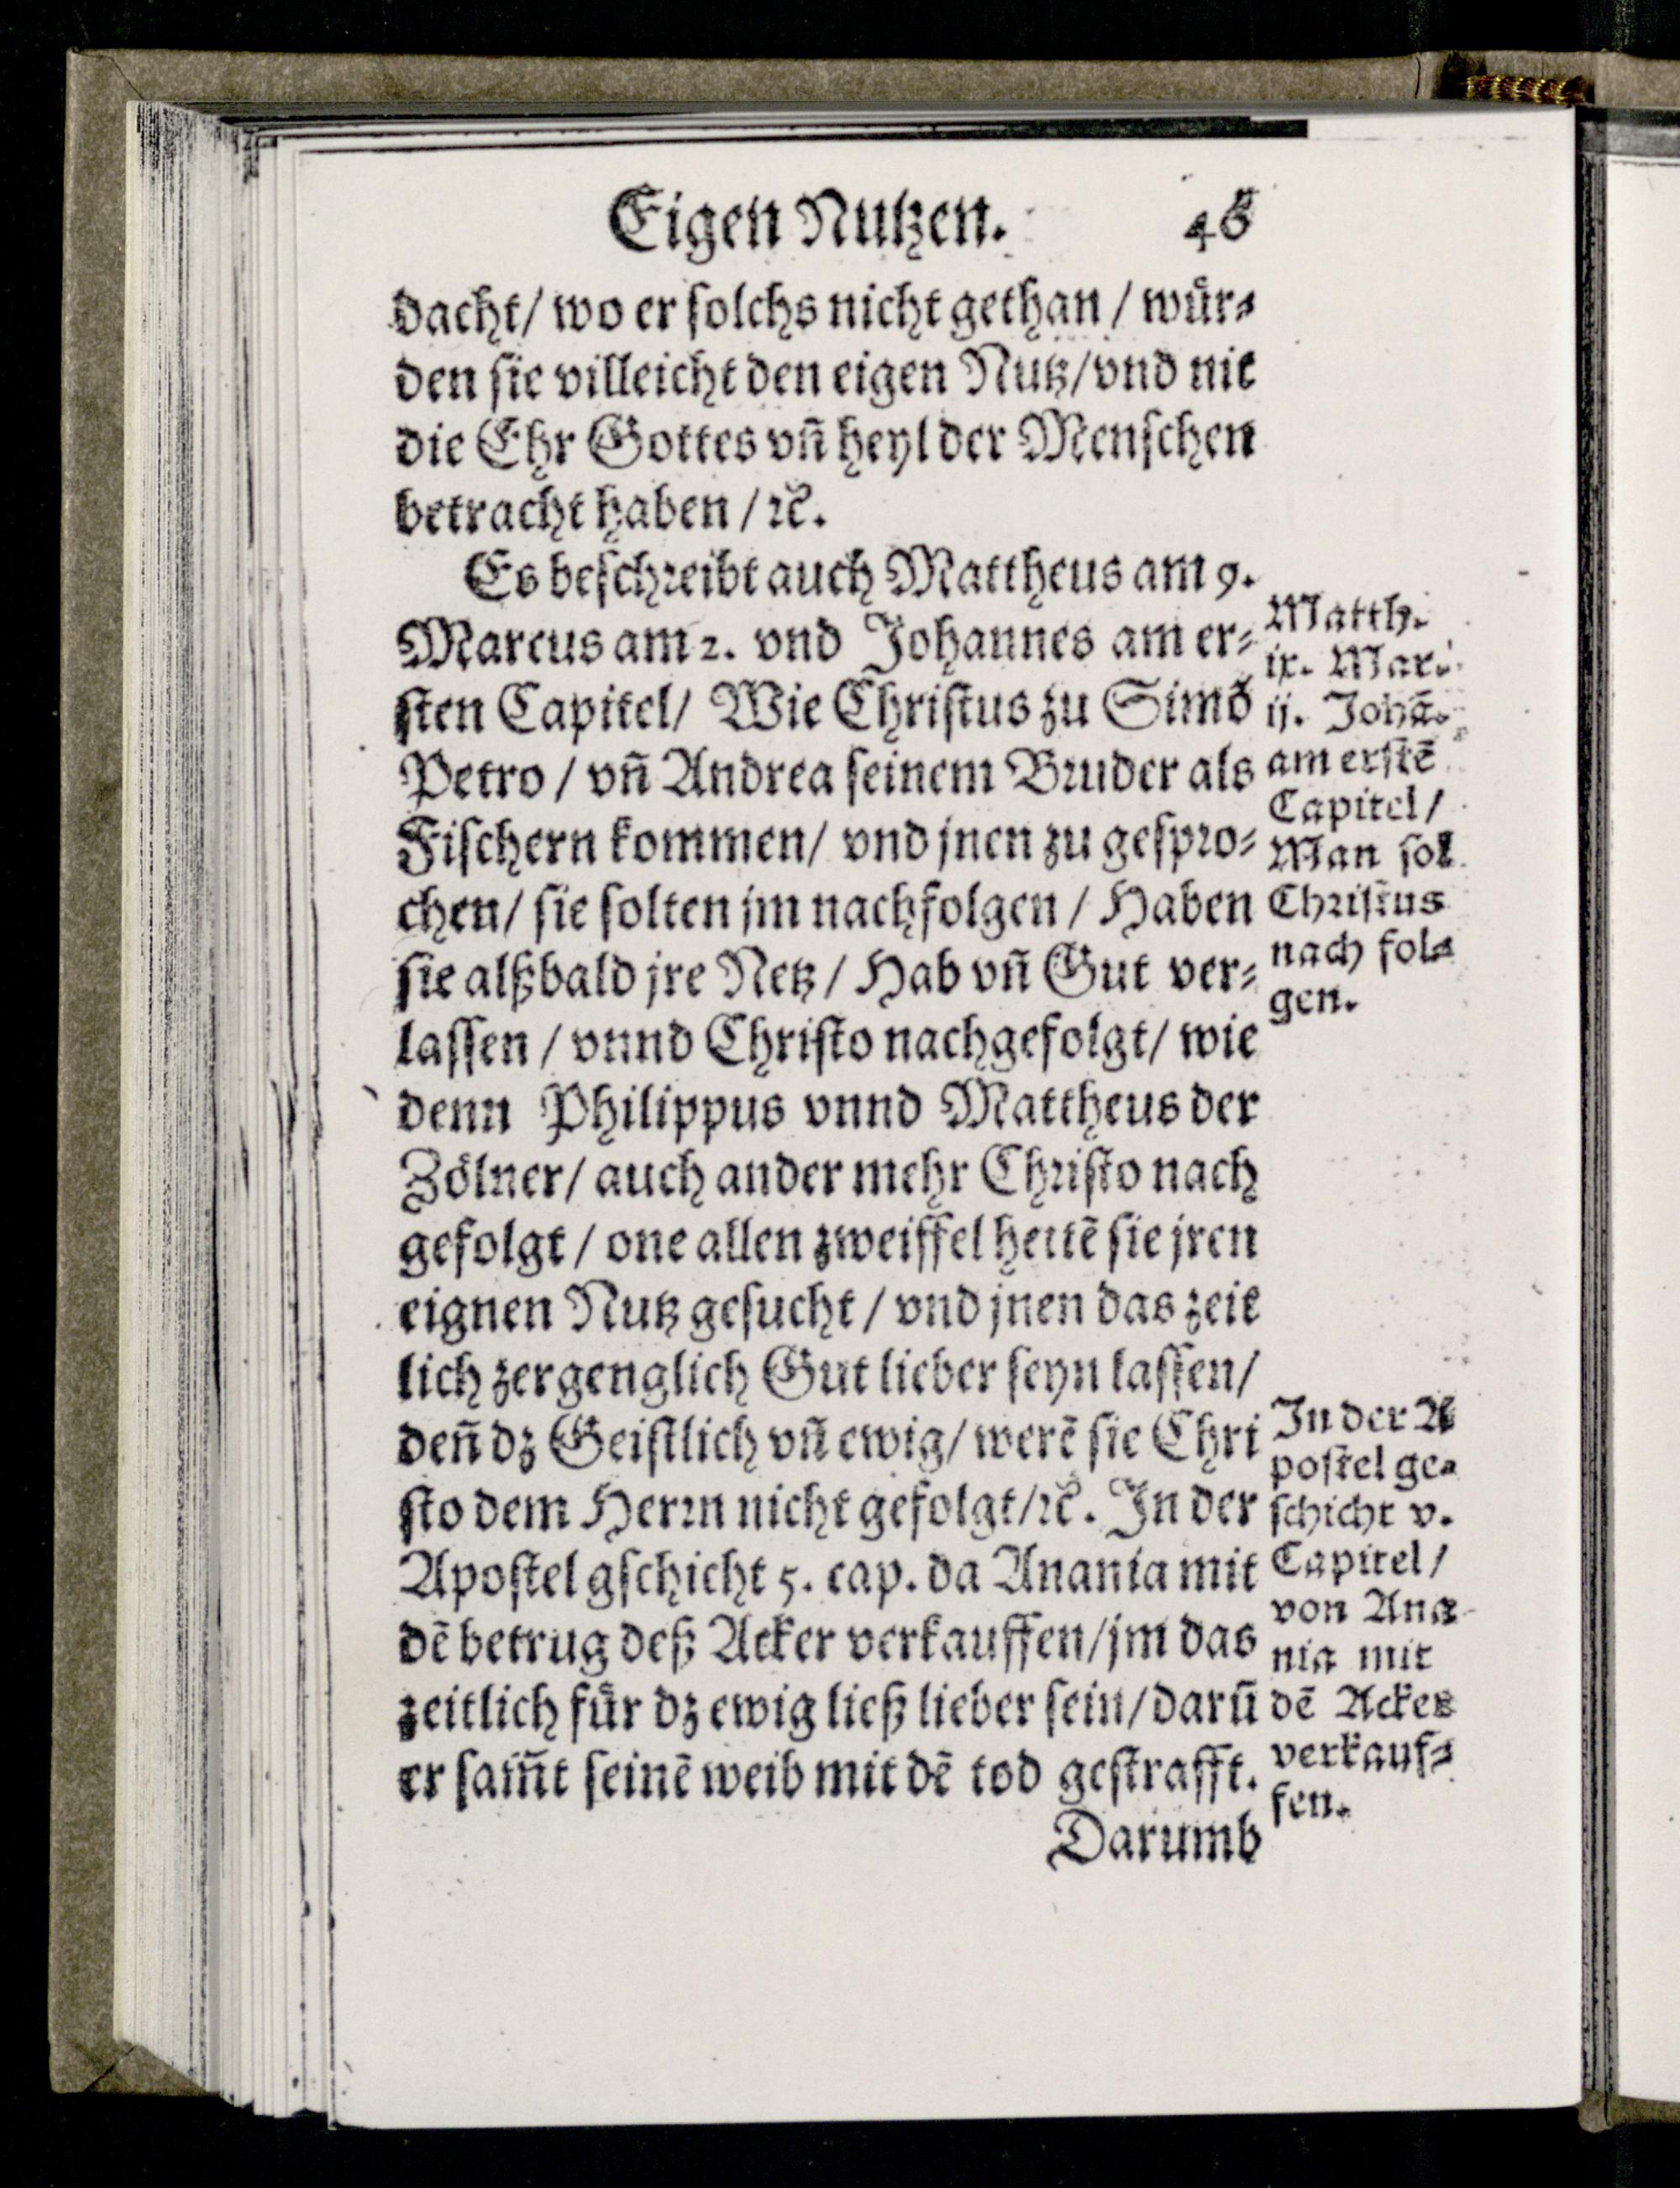 Eigen Nutzen. 48
dacht/ wo er ſolchs nicht gethan / wuͤr⸗
den ſie villeicht den eigen Nutz/vnd nit
die Ehr Gottes vñ heyl der Menſchen
betracht haben / ꝛc̃.
Es beſchꝛeibt auch Mattheus am 9.
Marcus am 2. vnd Johannes am er⸗
ſten Capitel/ Wie Chriſtus zu Simõ
Petro / vñ Andrea ſeinem Bꝛuder als
Fiſchern kommen/ vnd jnen zu geſpꝛo⸗
chen/ ſie ſolten jm nachfolgen / Haben
ſie alßbald jre Netz / Hab vñ Gut ver⸗
laſſen / vnnd Chriſto nachgefolgt/ wie
denn Philippus vnnd Mattheus der
Zoͤlner/ auch ander mehr Chꝛiſto nach
gefolgt / one allen zweiffel hettẽ ſie jren
eignen Nutz geſucht / vnd jnen das zeit
lich zergenglich Gut lieber ſeyn laſſen/
deñ dz Geiſtlich vñ ewig/ werẽ ſie Chri
ſto dem Herꝛn nicht gefolgt/ꝛc̃. In der
Apoſtel gſchicht 5. cap. da Anania mit
dẽ betrug deß Acker verkauffen/jm das
zeitlich fuͤr dz ewig ließ lieber ſein/darũ
er ſam̃t ſeinẽ weib mit dẽ tod geſtrafft.
Darumb
Matth.
ix. Mar.
ij. Johã.
am erſtẽ
Capitel/
Man ſol
Chꝛiſtus
nach fol⸗
gen.
In der A
poſtel ge⸗
ſchicht v.
Capitel/
von Ana
nia mit
dẽ Acker
verkauf⸗
fen.